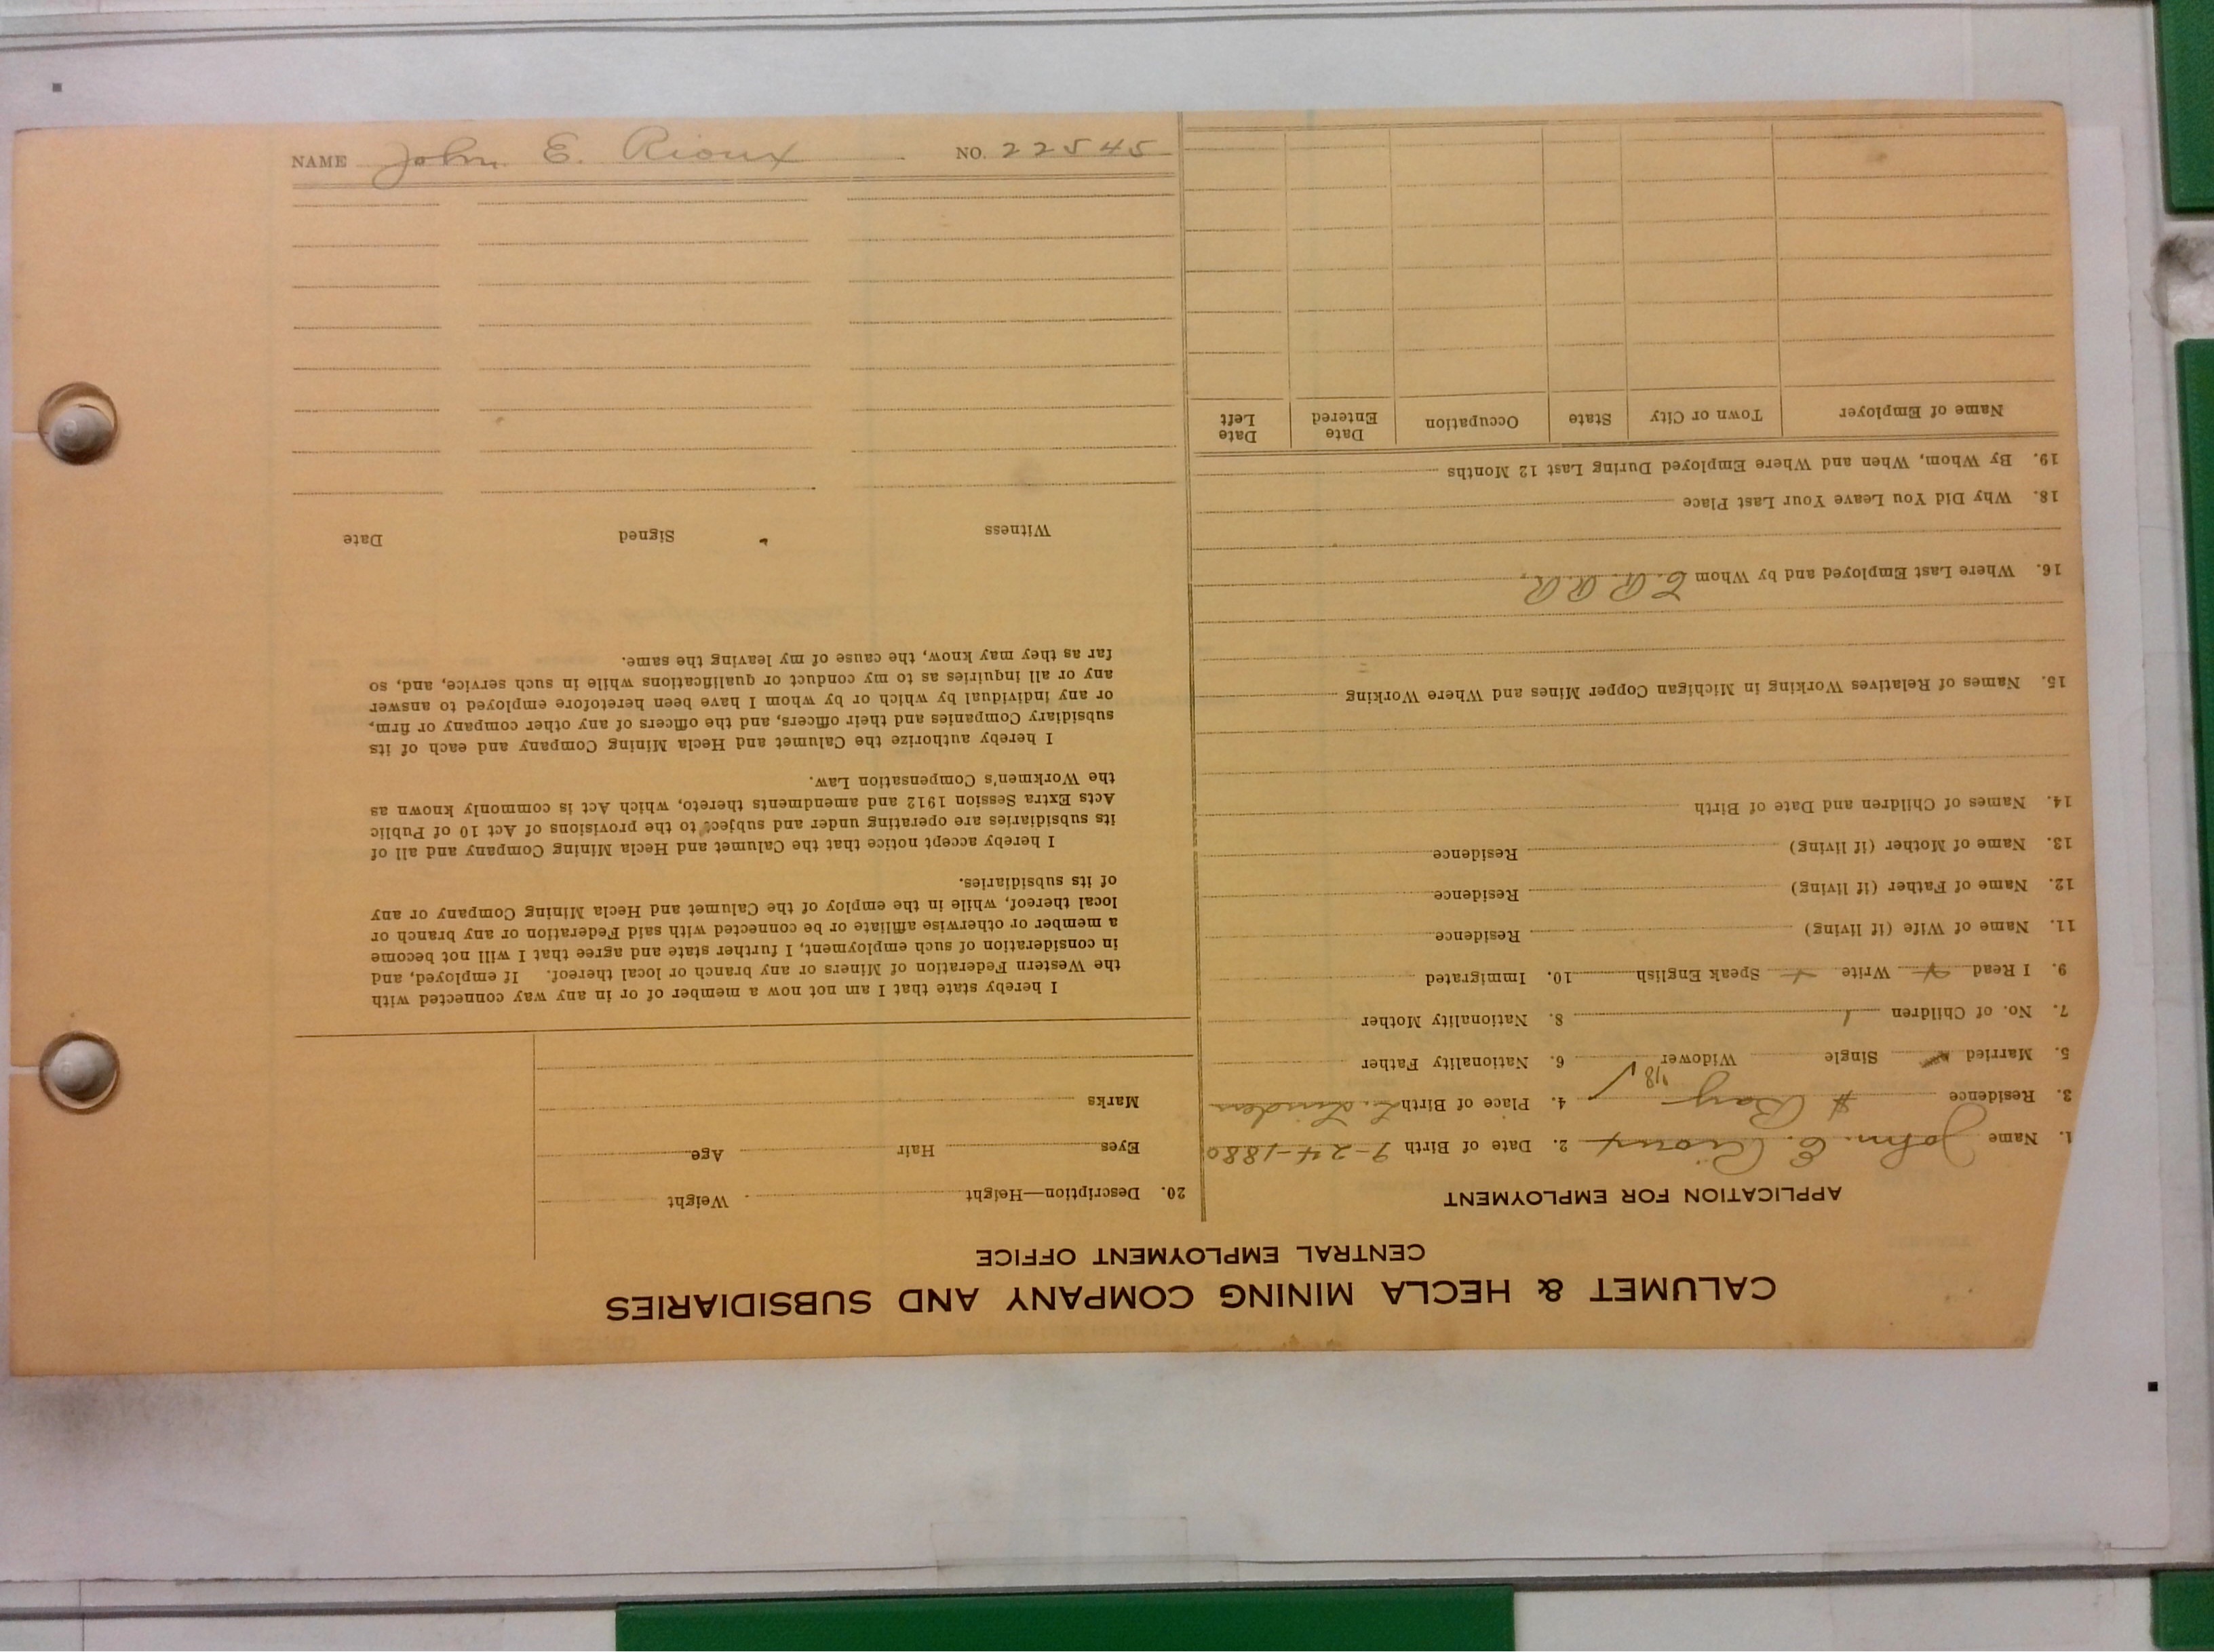 CALUMET & HECLA MINING COMPANY AND SUBSIDIARIES
CENTRAL EMPLOYMENT OFFICE
APPLICATION FOR EMPLOYMENT
1. Name John E. Rioux 2. Date of Birth 9-24-1880
3. Residence Bay 4. Place of Birth L. Linden
5. Married Single Widower 6. Nationality Father
7. No. of Children 1 8. Nationality Mother
9. I Read Write Speak English 10. Immigrated
11. Name of Wife (if living) Residence
12. Name of Father (if living) Residence
13. Name of Mother (if living) Residence
14. Names of Children and Date of Birth
15. Names of Relatives Working in Michigan Copper Mines and Where Working
16. Where Last Employed and by Whom
18. Why Did You Leave Your Last Place
19. By Whom, When and Where Employed During Last 12 Months
Name of Employer Town or City State Occupation Date Entered Date Left
20. Description—Height Weight
Eyes Hair Age
Marks
I hereby state that I am not now a member of or in any way connected with
the Western Federation of Miners or any branch or local thereof. If employed, and
in consideration of such employment, I further state and agree that I will not become
a member or otherwise affiliate or be connected with said Federation or any branch or
local thereof, while in the employ of the Calumet and Hecla Mining Company or any
of its subsidiaries.
I hereby accept notice that the Calumet and Hecla Mining Company and all of
its subsidiaries are operating under and subject to the provisions of Act 10 of Public
Acts Extra Session 1912 and amendments thereto, which Act is commonly known as
the Workmen's Compensation Law.
I hereby authorize the Calumet and Hecla Mining Company and each of its
subsidiary Companies and their officers, and the officers of any other company or firm,
or any individual by which or by whom I have been heretofore employed to answer
any or all inquiries as to my conduct or qualifications while in such service, and, so
far as they may know, the cause of my leaving the same.
Witness Signed Date
NAME John E. Rioux NO. 22545